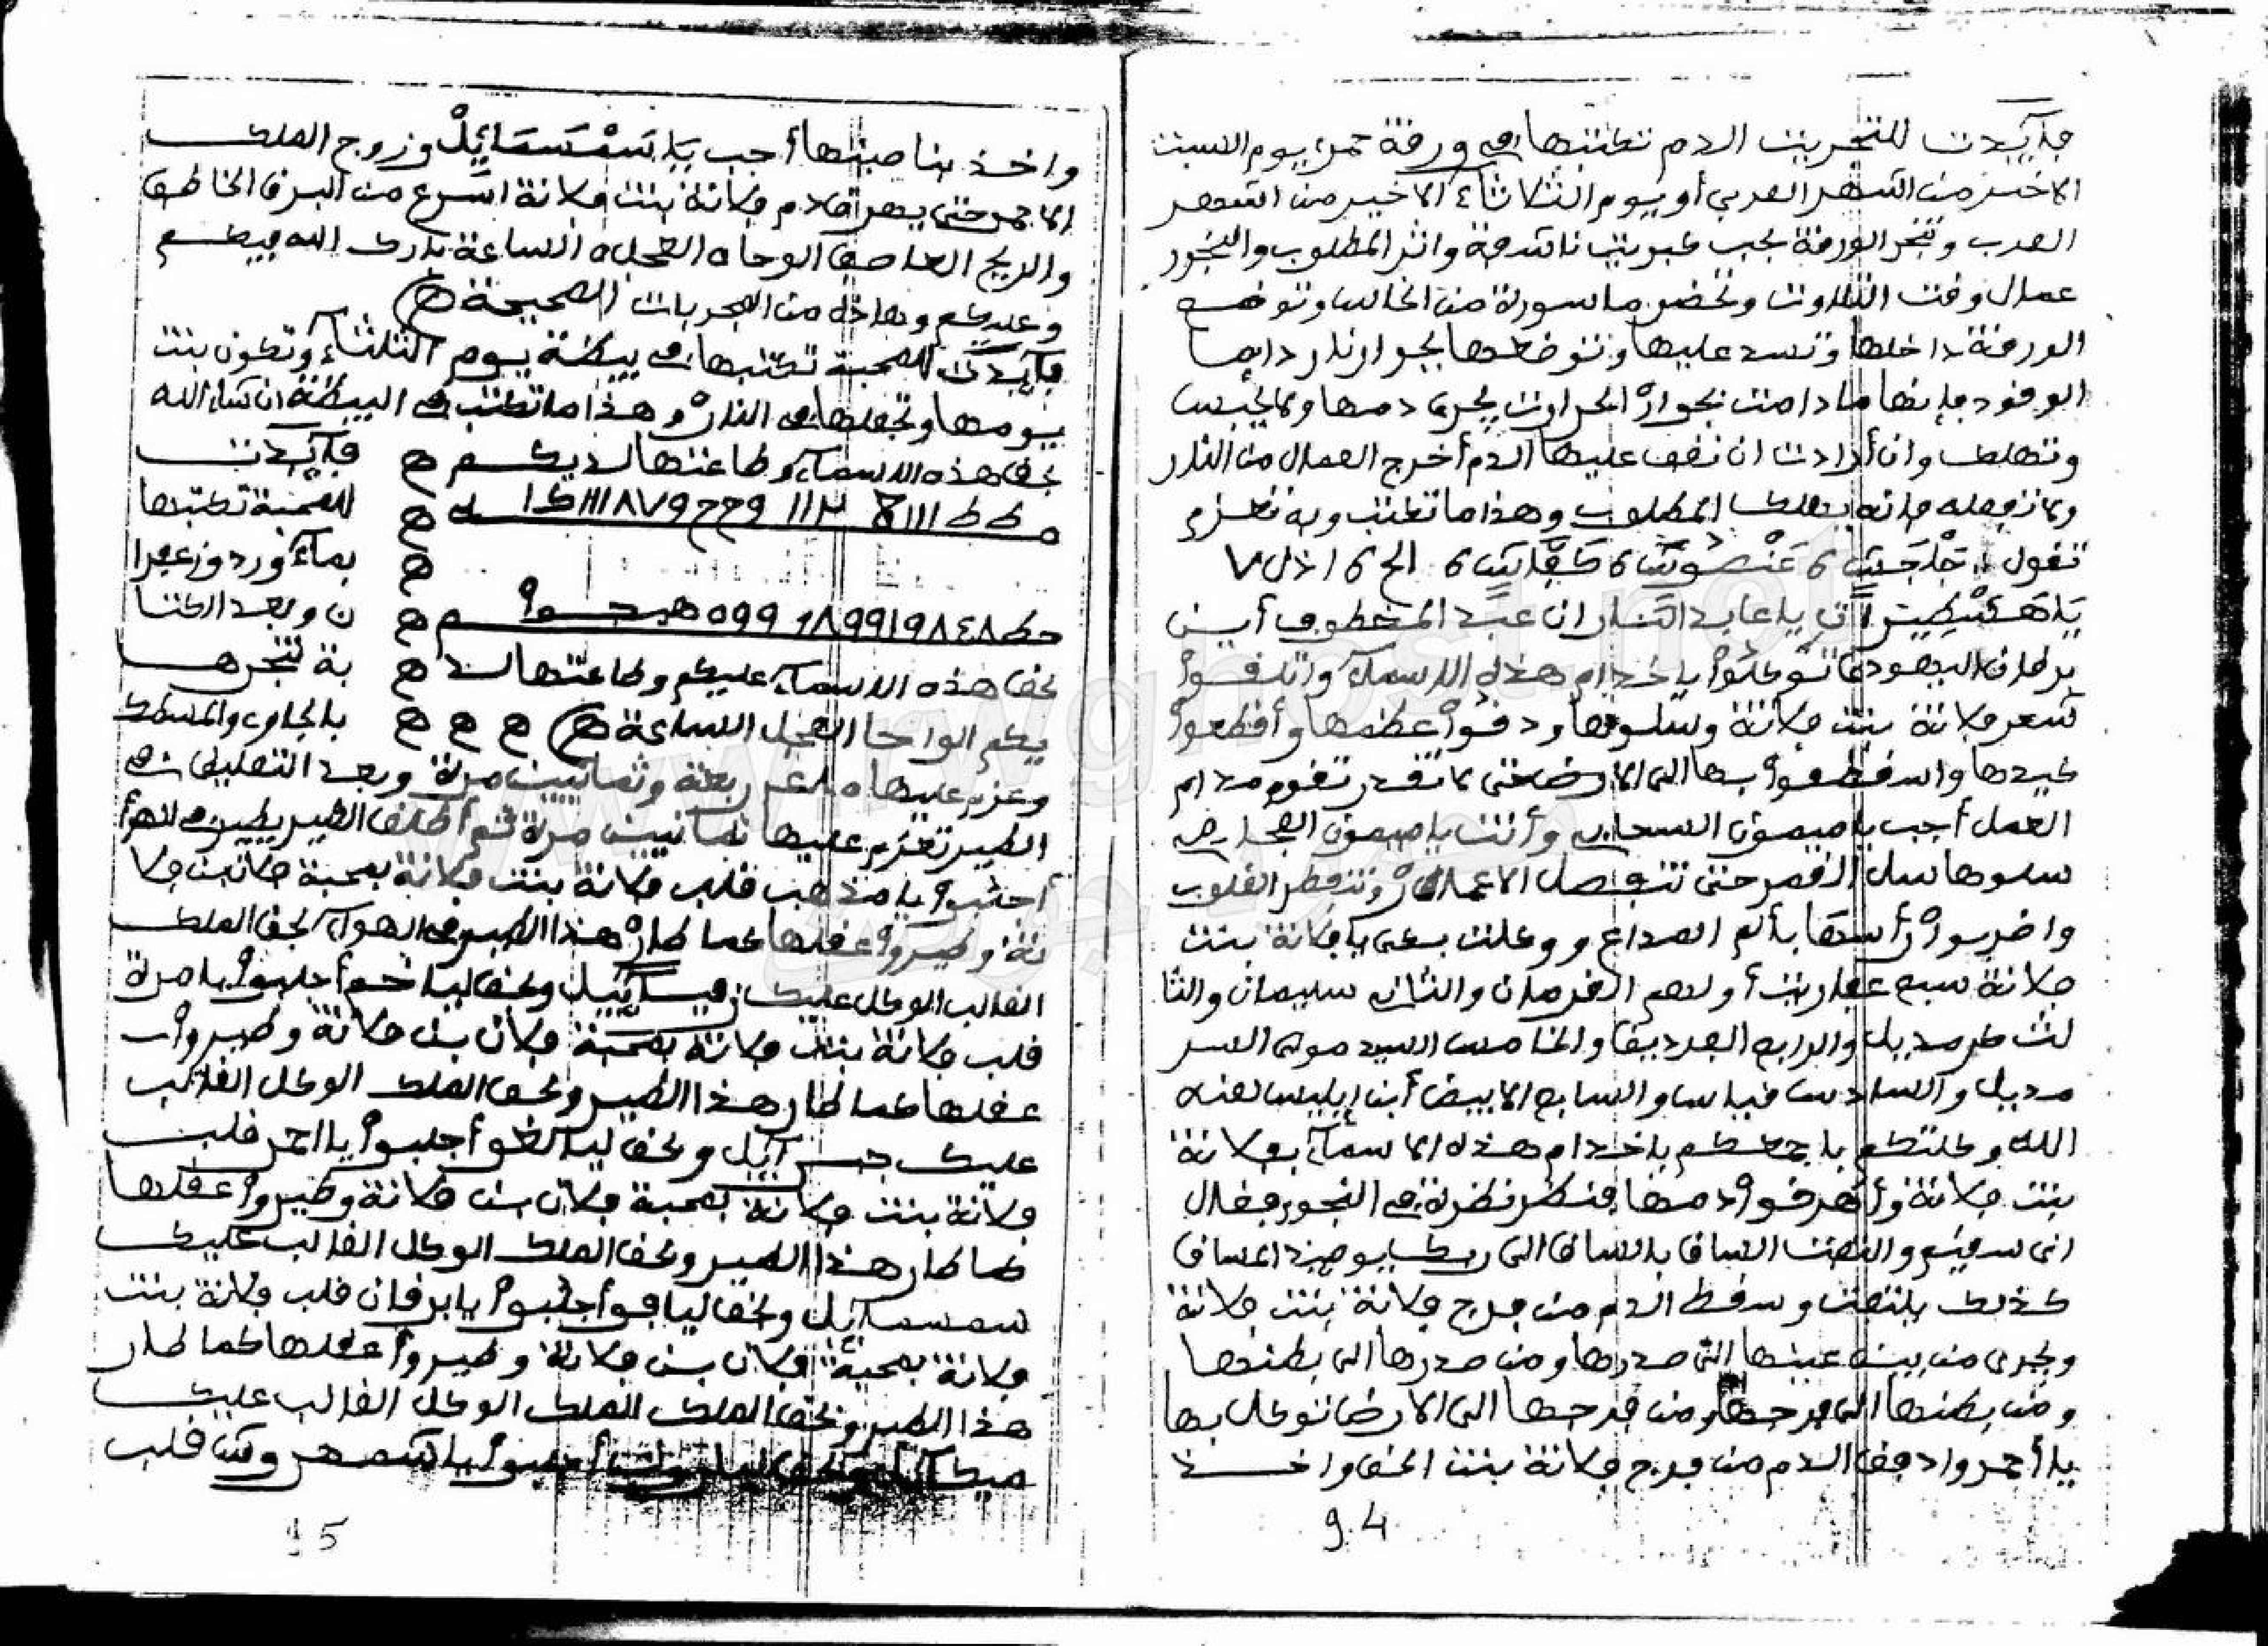 فائدت للتجريت الدم تكتبها في ورقة حمرا يوم السبت
الاخير من الشهر العربي أو يوم الثلاثاء الاخير من الشهر
العرب وتبخر الورقة بحب كبريت ناشفة واثر المطلوب والبخور
عمال وقت التلاوت وتحضر ماسورة من النحاس وتوضع
الورقة داخلها وتسد عليها وتوضعها بجوار نار دايما
الوقود فإنها ما دامت بجوار الحرارت يجري دمها ولا يحبس
وتهلك وان أرادت ان تقف عليها الدم أخرج العمال من النار
ولا تفعله فانه يهلك المطلوب وهذا ما تكتب وبه تعزم
تقول
يا عابد النار ان عبد المخطوف أين
برقان اليهودي توكلوا يا خدام هذه الاسماء واتلفوا
شعر فلانة بنت فلانة وسلوها ودقوا عظمها وأقطعوا
كبدها واسقطوا بها الى الارض حتى لا تقدر تقوم مدام
العمل أجب يا ميمون السحابي وأنت يا ميمون
سلوها سل القمر حتى تنفصل الاعمال وتنفطر القلوب
واضربوا رأسها بألم الصداع ووكلت بك يا فلانة بنت
فلانة سبع عفاريت أولهم القرمان والثاني سليمان والثا
لث طرمديل والرابع والخامس السيد موسى السر
مديل والسادس فياس والسابع الابيض أبن إبليس لعنه
الله وكلتكم يا جمعكم يا خدام هذه الاسماء بفلانة
بنت فلانة وأهرقوا دمها فنظر نظرة في النجوم فقال
انى سقيم والتفت الساق بالساق الى ربك يومئذ المساق
كذلك يلتفت وسقط الدم من فرج فلانة بنت فلانة
ويجري من بين عينها الى صدرها ومن صدرها الى بطنها
ومن بطنها الى فرجها ومن فرجها الى الارض توكل بها
يا أحمر وادفق الدم من فرج فلانة بنت الحق واخذ
94
واخذ بناصيتها أجب يا سمسمائيل وزوج الملك
الاحمر حتى يهراق دم فلانة بنت فلانة اسرع من البرق الخاطف
والريح العاصف الوحاه العجله الساعة بارك الله فيكم
وعليكم وهاذه من المجربات الصحيحة ه
فائدت للمحبة تكتبها في بيضة يوم الثلثاء وتكون بنت
يومها وتجعلها في النار وهذا ما تكتب في البيضة ان شاء الله
بحق هذه الاسماء وطاعتها لديكم ه فائدت
للمحبة تكتبها
بماء ورد وزعفرا
ن وبعد الكتا
بحق هذه الاسماء عليكم وطاعتها لد ه بة تبخرها
يكم الواحا العجل الساعة ه ه ه ه بالجاوى والمسك
وعزم عليها ربعة وثمانين مرة وبعد التعليق في
الطير تعزم عليها ثمانين مرة ثم أطلق الطير يطير في الهوأ
أجلبوا يا مذهب قلب فلانة بنت فلانة بمحبة فلان بن فلا
نة وطيروا عقلها كما طار هذا الطير في الهوآ بحق الملك
الغالب الموكل عليك وبحق ليا خم أجلبوا يا مرة
قلب فلانة بنت فلانة بمحبة فلان بن فلانة وطيروا
عقلها كما طار هذا الطير وبحق الملك الوكل الغالب
عليك جبرائيل وبحق ليا أجلبوا يا احمر قلب
فلانة بنت فلانة بمحبة فلان بن فلانة وطيروا عقلها
كما طار هذا الطير وبحق الملك الوكل الغالب عليك
سمسمائيل وبحق ليا أجلبوا يا برقان قلب فلانة بنت
فلانة بمحبة فلان بن فلانة وطيروا عقلها كما طار
هذا الطير وبحق الملك الملك الوكل الغالب عليك
ميكآئيل يا شمهروش قلب